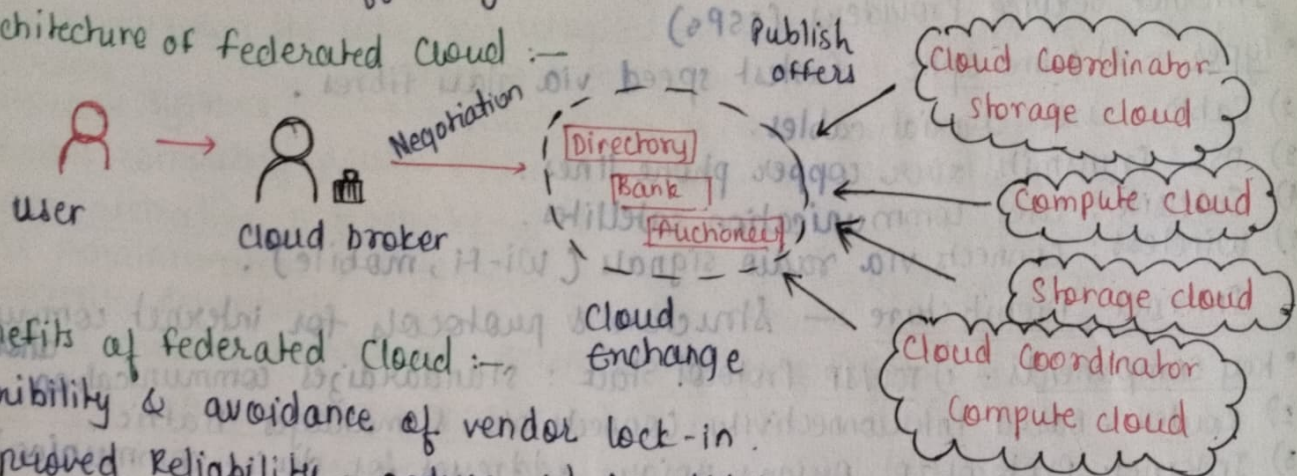 chitecture of federated Cloud :-
Publish
offers
Cloud Coordinator
storage cloud
Negotiation
Directory
Bank
Auctioneer
Compute cloud
user
Cloud broker
Storage cloud
Cloud
Exchange
Cloud Coordinator
Compute cloud
efits of federated Cloud :-
xibility & avoidance of vendor lock-in.
proved Reliability